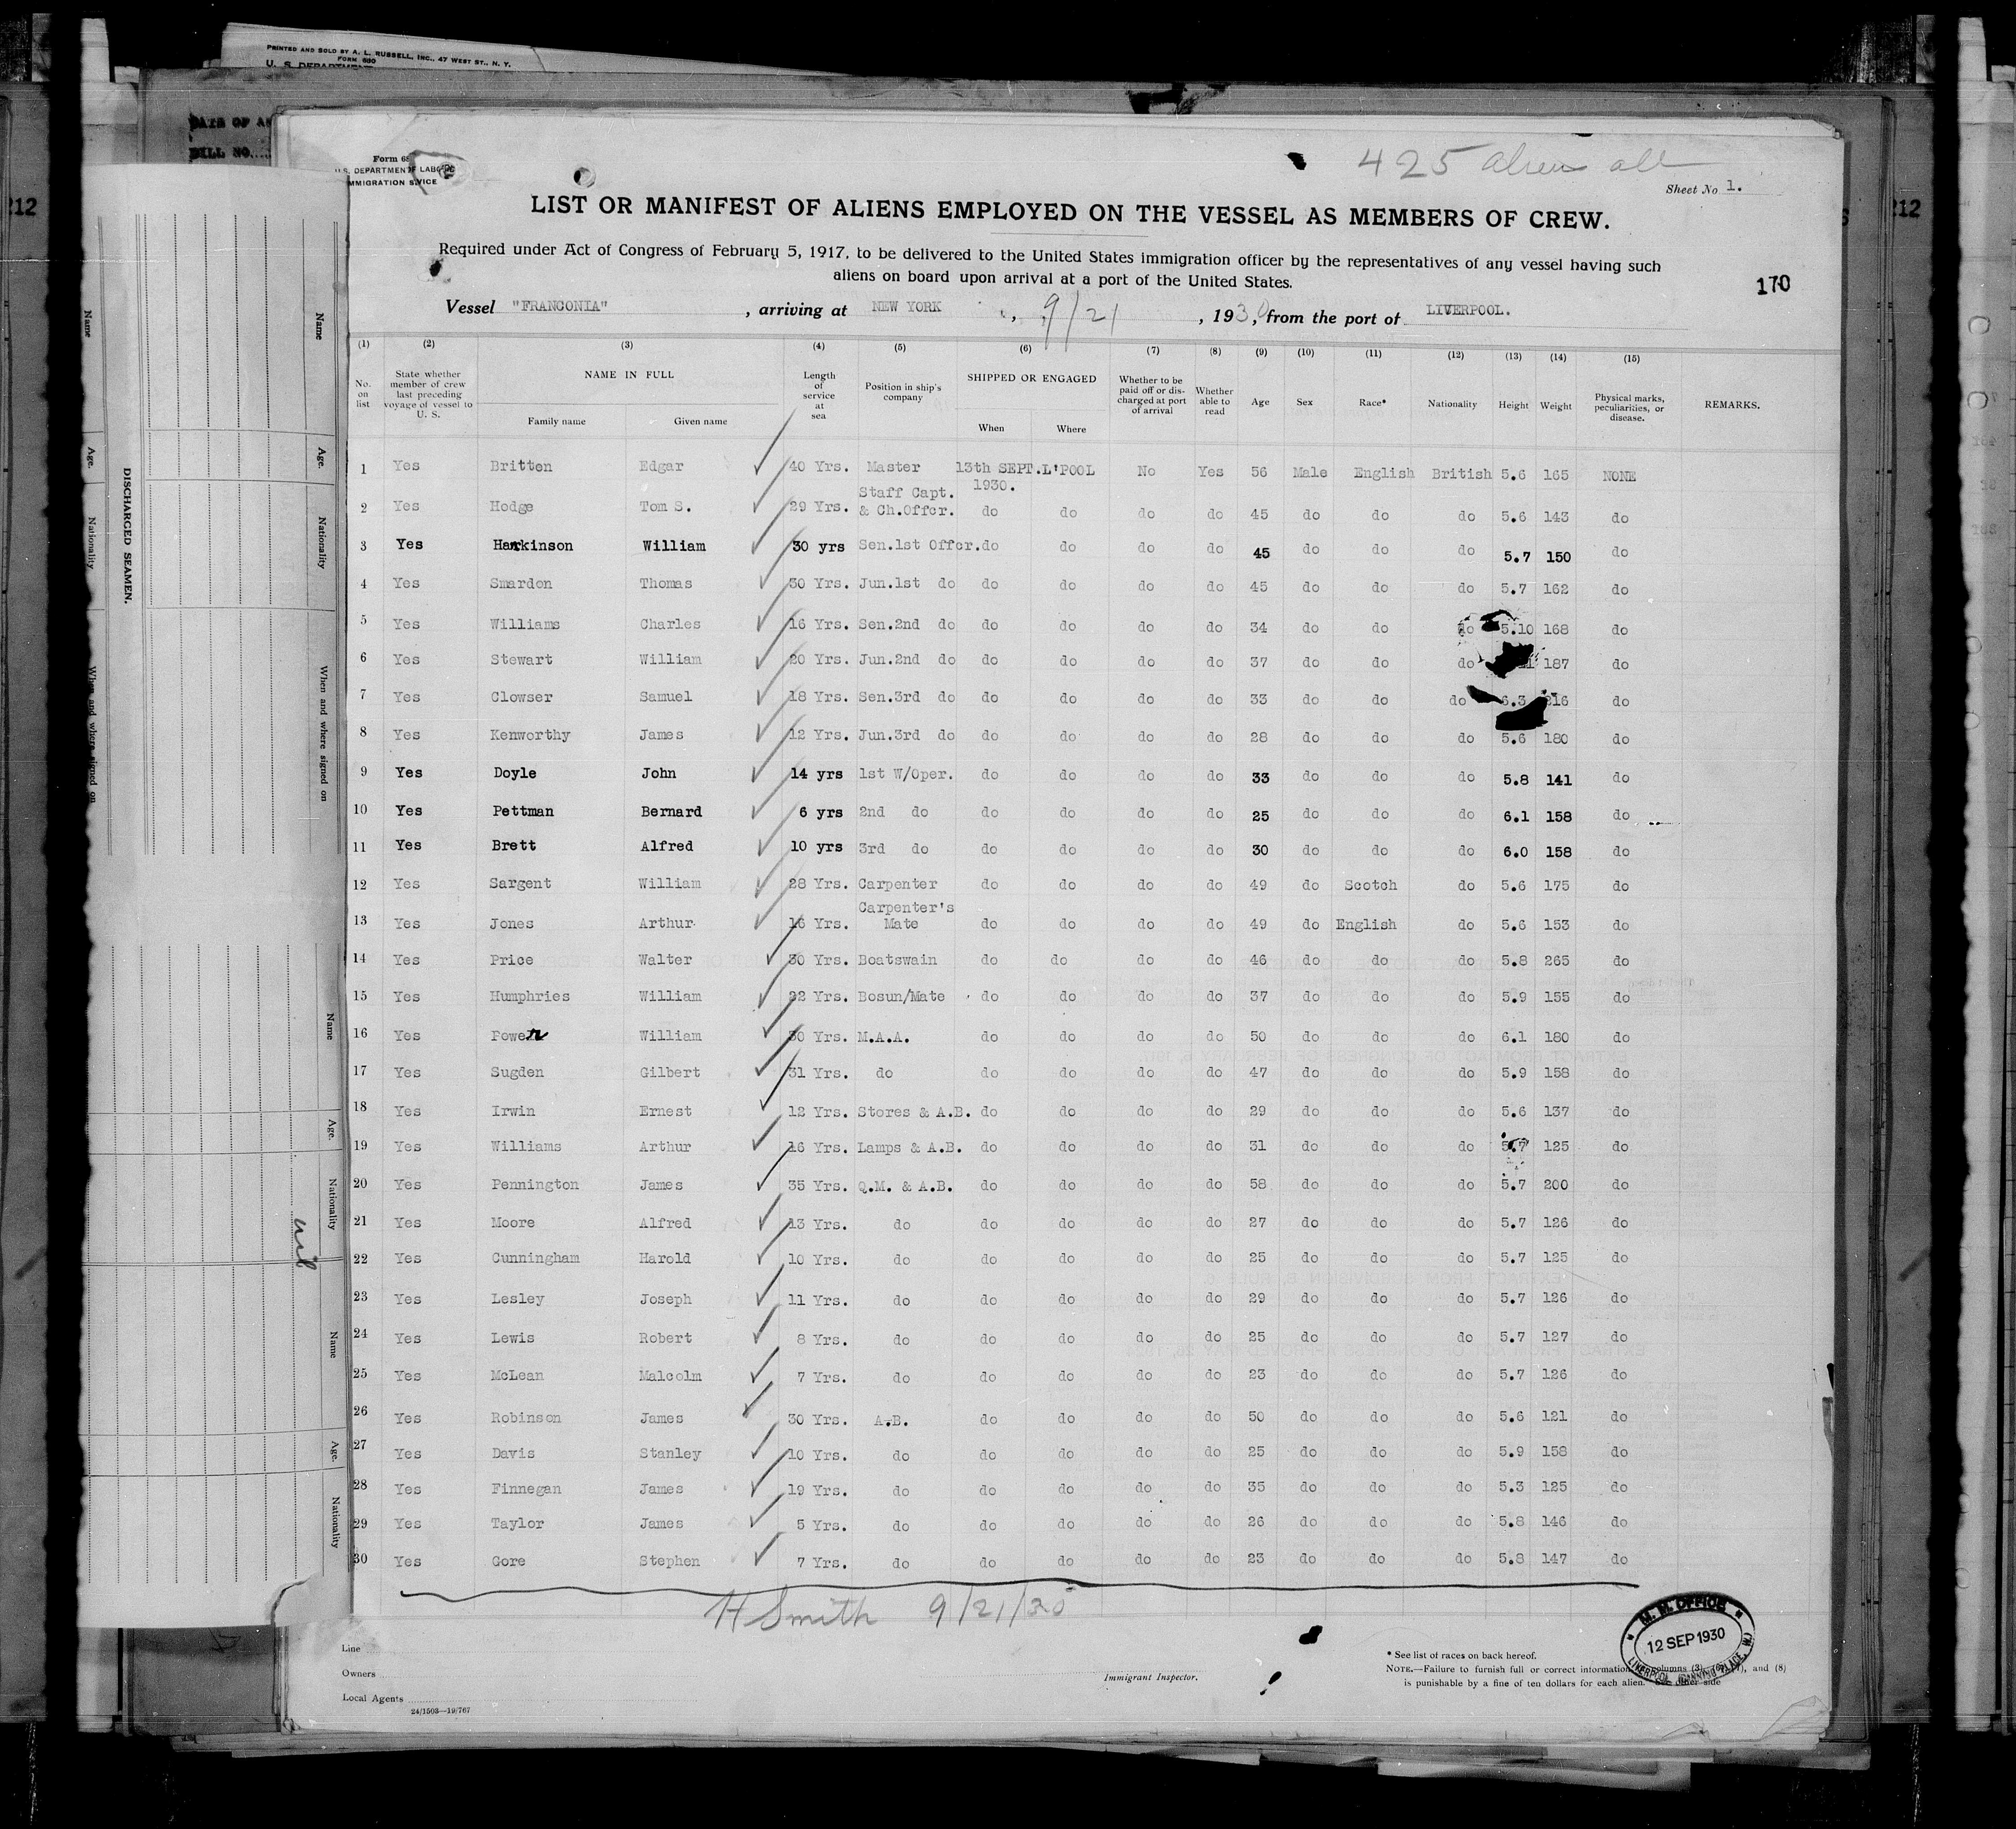 PRINTED AND SOLD BY A. L. RUSSELL, INC., 47 WEST ST., N. Y.
FORM 680
U. S. DEPARTMENT
DATE OF
BILL NO.
212
212
Form 68
U.S. DEPARTMENT OF LABOR
IMMIGRATION SERVICE
425 aliens all
Sheet No 1.
LIST OR MANIFEST OF ALIENS EMPLOYED ON THE VESSEL AS MEMBERS OF CREW.
Required under Act of Congress of February 5, 1917, to be delivered to the United States immigration officer by the representatives of any vessel having such
aliens on board upon arrival at a port of the United States.
170
Vessel "FRANCONIA" , arriving at NEW YORK , 9/21 , 1930, from the port of LIVERPOOL.
(1) (2) (3) (4) (5) (6) (7) (8) (9) (10) (11) (12) (13) (14) (15)
No. on list State whether member of crew last preceding voyage of vessel to U. S. NAME IN FULL Family name Given name Length of service at sea Position in ship's company SHIPPED OR ENGAGED When Where Whether to be paid off or discharged at port of arrival Whether able to read Age Sex Race* Nationality Height Weight Physical marks, peculiarities, or disease. REMARKS.
1 Yes Britten Edgar 40 Yrs. Master 13th SEPT. 1930. L'POOL No Yes 56 Male English British 5.6 165 NONE
2 Yes Hodge Tom S. 29 Yrs. Staff Capt. & Ch.Offcr. do do do do 45 do do do 5.6 143 do
3 Yes Harkinson William 30 yrs Sen.1st Offcr. do do do do 45 do do do 5.7 150 do
4 Yes Smardon Thomas 30 Yrs. Jun.1st do do do do do 45 do do do 5.7 162 do
5 Yes Williams Charles 16 Yrs. Sen.2nd do do do do do 34 do do do 5.10 168 do
6 Yes Stewart William 20 Yrs. Jun.2nd do do do do do 37 do do do 187 do
7 Yes Clowser Samuel 18 Yrs. Sen.3rd do do do do do 33 do do do 6.3 216 do
8 Yes Kenworthy James 12 Yrs. Jun.3rd do do do do do 28 do do do 5.6 180 do
9 Yes Doyle John 14 yrs 1st W/Oper. do do do do 33 do do do 5.8 141 do
10 Yes Pettman Bernard 6 yrs 2nd do do do do do 25 do do do 6.1 158 do
11 Yes Brett Alfred 10 yrs 3rd do do do do do 30 do do do 6.0 158 do
12 Yes Sargent William 28 Yrs. Carpenter do do do do 49 do Scotch do 5.6 175 do
13 Yes Jones Arthur 16 Yrs. Carpenter's Mate do do do do 49 do English do 5.6 153 do
14 Yes Price Walter 30 Yrs. Boatswain do do do do 46 do do do 5.8 265 do
15 Yes Humphries William 22 Yrs. Bosun/Mate do do do do 37 do do do 5.9 155 do
16 Yes Power William 30 Yrs. M.A.A. do do do do 50 do do do 6.1 180 do
17 Yes Sugden Gilbert 31 Yrs. do do do do do 47 do do do 5.9 158 do
18 Yes Irwin Ernest 12 Yrs. Stores & A.B. do do do do 29 do do do 5.6 137 do
19 Yes Williams Arthur 16 Yrs. Lamps & A.B. do do do do 31 do do do 5.7 125 do
20 Yes Pennington James 35 Yrs. Q.M. & A.B. do do do do 58 do do do 5.7 200 do
21 Yes Moore Alfred 13 Yrs. do do do do do 27 do do do 5.7 126 do
22 Yes Cunningham Harold 10 Yrs. do do do do do 25 do do do 5.7 125 do
23 Yes Lesley Joseph 11 Yrs. do do do do do 29 do do do 5.7 126 do
24 Yes Lewis Robert 8 Yrs. do do do do do 25 do do do 5.7 127 do
25 Yes McLean Malcolm 7 Yrs. do do do do do 23 do do do 5.7 126 do
26 Yes Robinson James 30 Yrs. A.B. do do do do 50 do do do 5.6 121 do
27 Yes Davis Stanley 10 Yrs. do do do do do 25 do do do 5.9 158 do
28 Yes Finnegan James 19 Yrs. do do do do do 35 do do do 5.3 125 do
29 Yes Taylor James 5 Yrs. do do do do do 26 do do do 5.8 146 do
30 Yes Gore Stephen 7 Yrs. do do do do do 23 do do do 5.8 147 do
H Smith 9/21/30
Line
Owners
Local Agents
24/1503—19/767
Immigrant Inspector.
* See list of races on back hereof.
NOTE.—Failure to furnish full or correct information columns (3), (6), (7), and (8)
is punishable by a fine of ten dollars for each alien. See other side
M. M. OFFICE
12 SEP 1930
LIVERPOOL CANNING PLACE
DISCHARGED SEAMEN.
Name
Age.
Nationality
When and where signed on
Name
Age.
Nationality
When and where signed on
Name
Age.
Nationality
nil
Name
Age.
Nationality